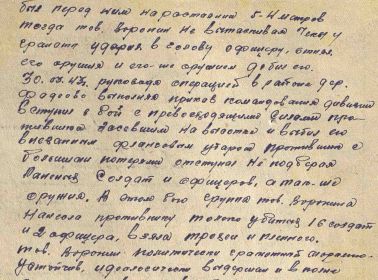 был перед ним на расстоянии 5-4 метров
тогда тов. Воронин не вытаскивая чеки у
гранаты ударил в голову офицеру, отнял
его оружия и его-же оружием добил его.
30.03.43, руководя операцией в районе дер.
Фадеево выполняя приказ командования дивизии
вступил в бой с превосходящими силами про-
тивника засевшим на высотах и выбил его
внезапным фланговым ударом противник с
большими потерями отступил не подбирая
раненых солдат и офицеров, а так-же
оружия. В этом бою группа тов. Воронина
нанесла противнику только убитых 16 солдат
и 2 офицера, взяла трофеи и пленного.
тов. Воронин политически грамотный морально-
устойчив, идеологически выдержан и